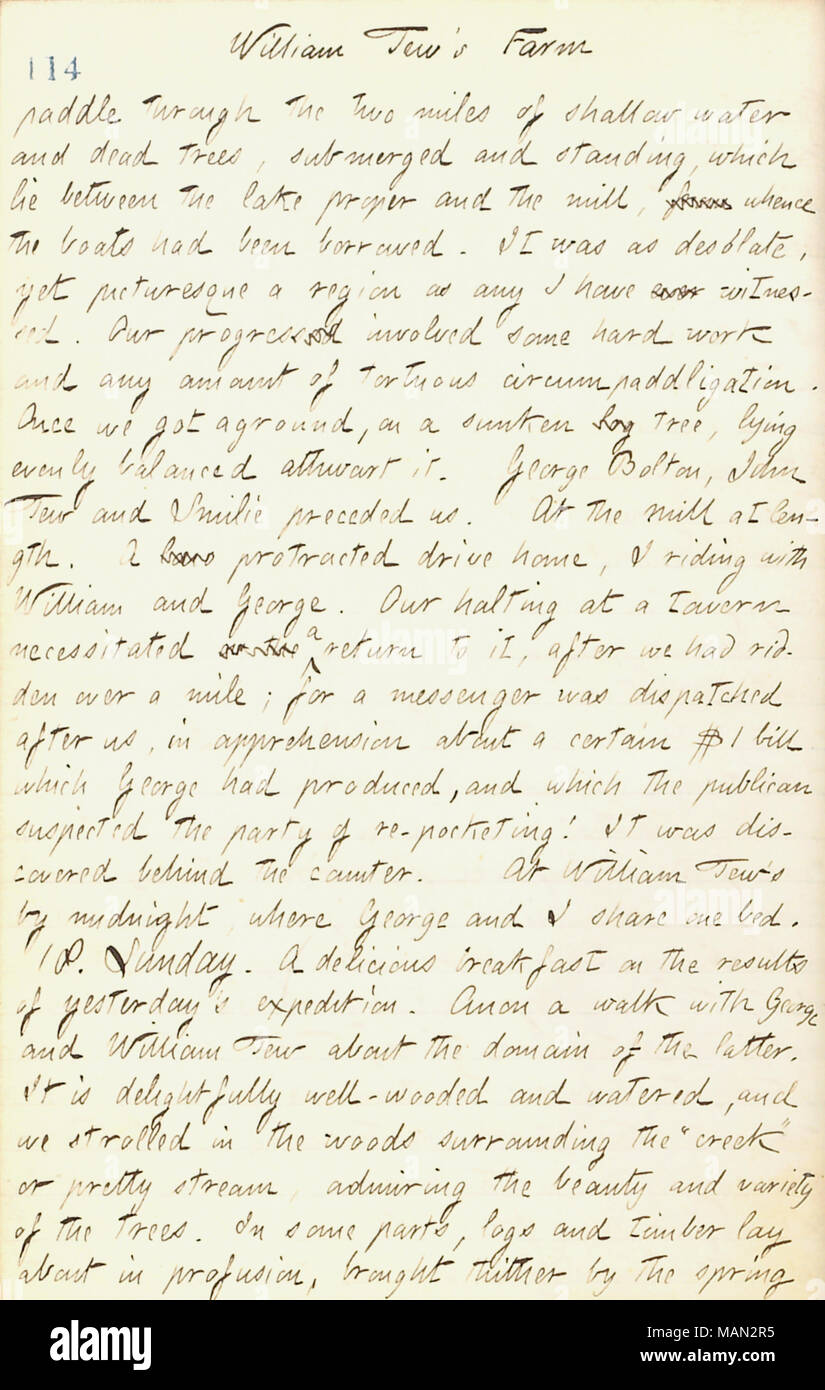 William Tew's Farm
114
paddle through the two miles of shallow water
and dead trees, submerged and standing, which
lie between the lake proper and the mill, from whence
the boats had been borrowed. It was as desolate,
yet picturesque a region as any I have ever witnes-
sed. Our progress involved some hard work
and any amount of tortuous circumpaddligation.
Once we got aground, on a sunken log tree, lying
evenly balanced athwart it. George Bolton, John
Tew and Smilie preceded us. At the mill at len-
gth. A protracted drive home, I riding with
William and George. Our halting at a tavern
necessitated a return to it, after we had rid-
den over a mile; for a messenger was dispatched
after us, in apprehension about a certain $1 bill
which George had produced, and which the publican
suspected the party of re-pocketing! It was dis-
covered behind the counter. At William Tew's
by midnight, where George and I share one bed.
18. Sunday. A delicious breakfast on the results
of yesterday's expedition. Anon a walk with George
and William Tew about the domain of the latter.
It is delightfully well-wooded and watered, and
we strolled in the woods surrounding the "creek"
or pretty stream, admiring the beauty and variety
of the trees. In some parts, logs and timber lay
about in profusion, brought thither by the spring
alamy
Image ID: MAN2R5
www.alamy.com